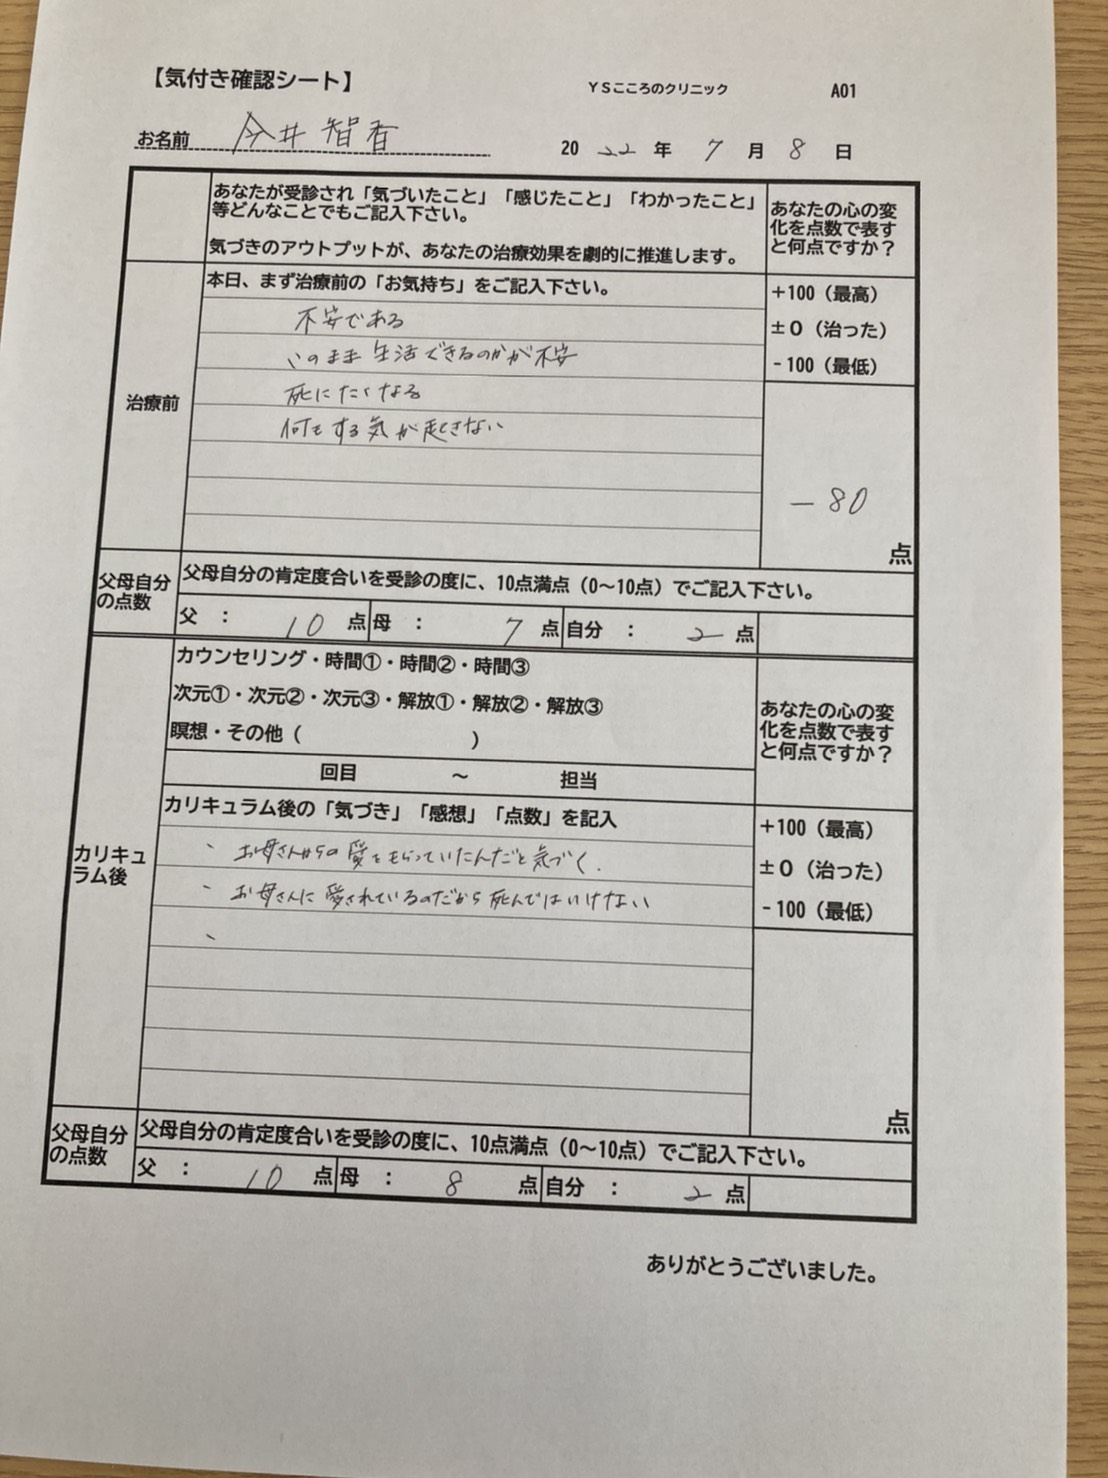 【気付き確認シート】
YSこころのクリニック A01
お名前 今井 智香 2022年 7月 8日
あなたが受診され「気づいたこと」「感じたこと」「わかったこと」
等どんなことでもご記入下さい。
気づきのアウトプットが、あなたの治療効果を劇的に推進します。
あなたの心の変
化を点数で表す
と何点ですか？
治療前
本日、まず治療前の「お気持ち」をご記入下さい。
不安である
このまま生活できるのかが不安
死にたくなる
何もする気が起きない
+100（最高）
±0（治った）
-100（最低）
-80
点
父母自分
の点数
父母自分の肯定度合いを受診の度に、10点満点（0～10点）でご記入下さい。
父 ： 10 点 母 ： 7 点 自分 ： 2 点
カリキュ
ラム後
カウンセリング・時間①・時間②・時間③
次元①・次元②・次元③・解放①・解放②・解放③
瞑想・その他（ ）
回目 ～ 担当
あなたの心の変
化を点数で表す
と何点ですか？
カリキュラム後の「気づき」「感想」「点数」を記入
、お母さんからの愛をもらっていたんだと気づく.
、お母さんに愛されているのだから死んではいけない
、
+100（最高）
±0（治った）
-100（最低）
点
父母自分
の点数
父母自分の肯定度合いを受診の度に、10点満点（0～10点）でご記入下さい。
父 ： 10 点 母 ： 8 点 自分 ： 2 点
ありがとうございました。